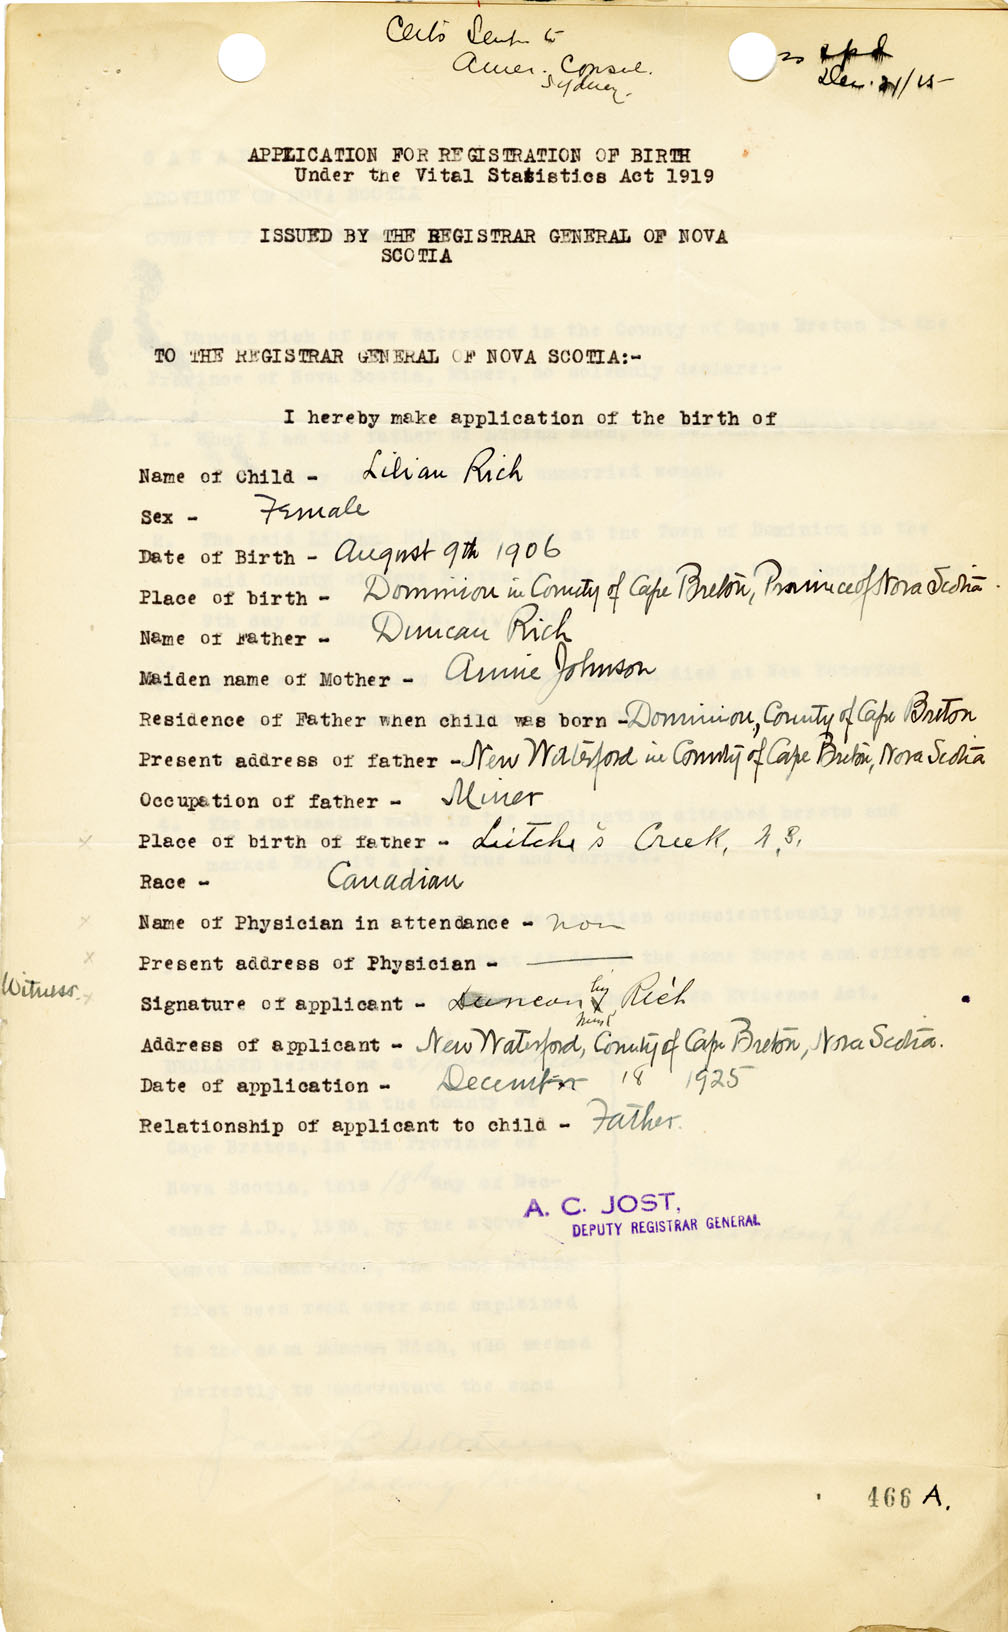 Certs Sent to
Amer. Consul.
Sydney.
Dec. 21/25
APPLICATION FOR REGISTRATION OF BIRTH
Under the Vital Statistics Act 1919
ISSUED BY THE REGISTRAR GENERAL OF NOVA
SCOTIA
TO THE REGISTRAR GENERAL OF NOVA SCOTIA:-
I hereby make application of the birth of
Name of Child - Lilian Rich
Sex - Female
Date of Birth - August 9th 1906
Place of birth - Dominion in County of Cape Breton, Province of Nova Scotia.
Name of Father - Duncan Rich
Maiden name of Mother - Annie Johnson
Residence of Father when child was born - Dominion, County of Cape Breton
Present address of father - New Waterford in County of Cape Breton, Nova Scotia
Occupation of father - Miner
x Place of birth of father - Leitche's Creek, N.S.
Race - Canadian
x Name of Physician in attendance - non
x Present address of Physician - ———
Witness. x Signature of applicant - Duncan his x mark Rich
Address of applicant - New Waterford, County of Cape Breton, Nova Scotia.
Date of application - December 18 1925
Relationship of applicant to child - Father.
A. C. JOST,
DEPUTY REGISTRAR GENERAL
466 A.